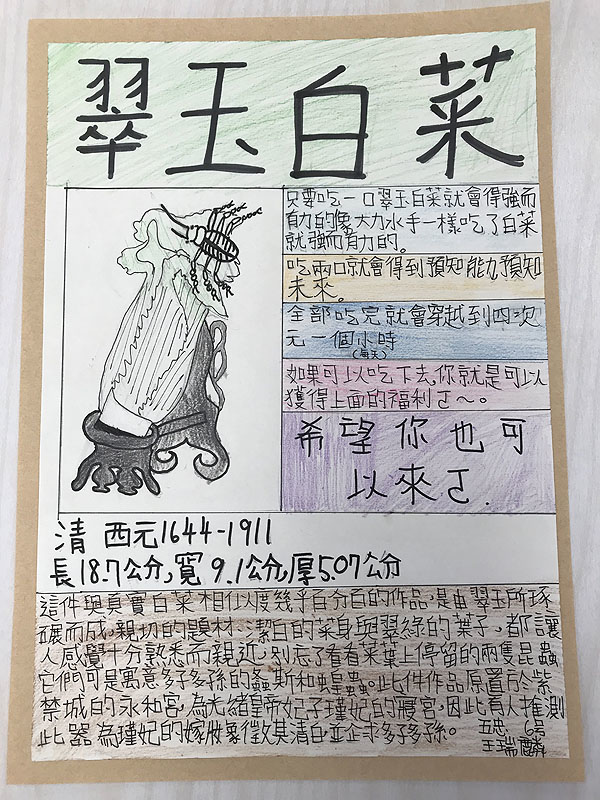 翠玉白菜
只要吃一口翠玉白菜就會得強而
有力的像大力水手一樣吃了白菜
就強而有力的。
吃兩口就會得到預知能力預知
未來。
全部吃完就會穿越到四次
元一個小時
(每天)
如果可以吃下去,你就是可以
獲得上面的福利ㄛ~。
希望你也可
以來ㄛ.
清 西元1644-1911
長18.7公分,寬 9.1公分,厚5.07公分
這件與真實白菜相似度幾乎百分百的作品,是由翠玉所琢
碾而成,親切的題材、潔白的菜身與翠綠的葉子,都讓
人感覺十分熟悉而親近,別忘了看看菜葉上停留的兩隻昆蟲
它們可是寓意多子多孫的螽斯和蝗蟲。此件作品原置於紫
禁城的永和宮,為光緒皇帝妃子瑾妃的寢宮,因此有人推測
此器為瑾妃的嫁妝象徵其清白並企求多子多孫。
五忠 6号
王瑞麟